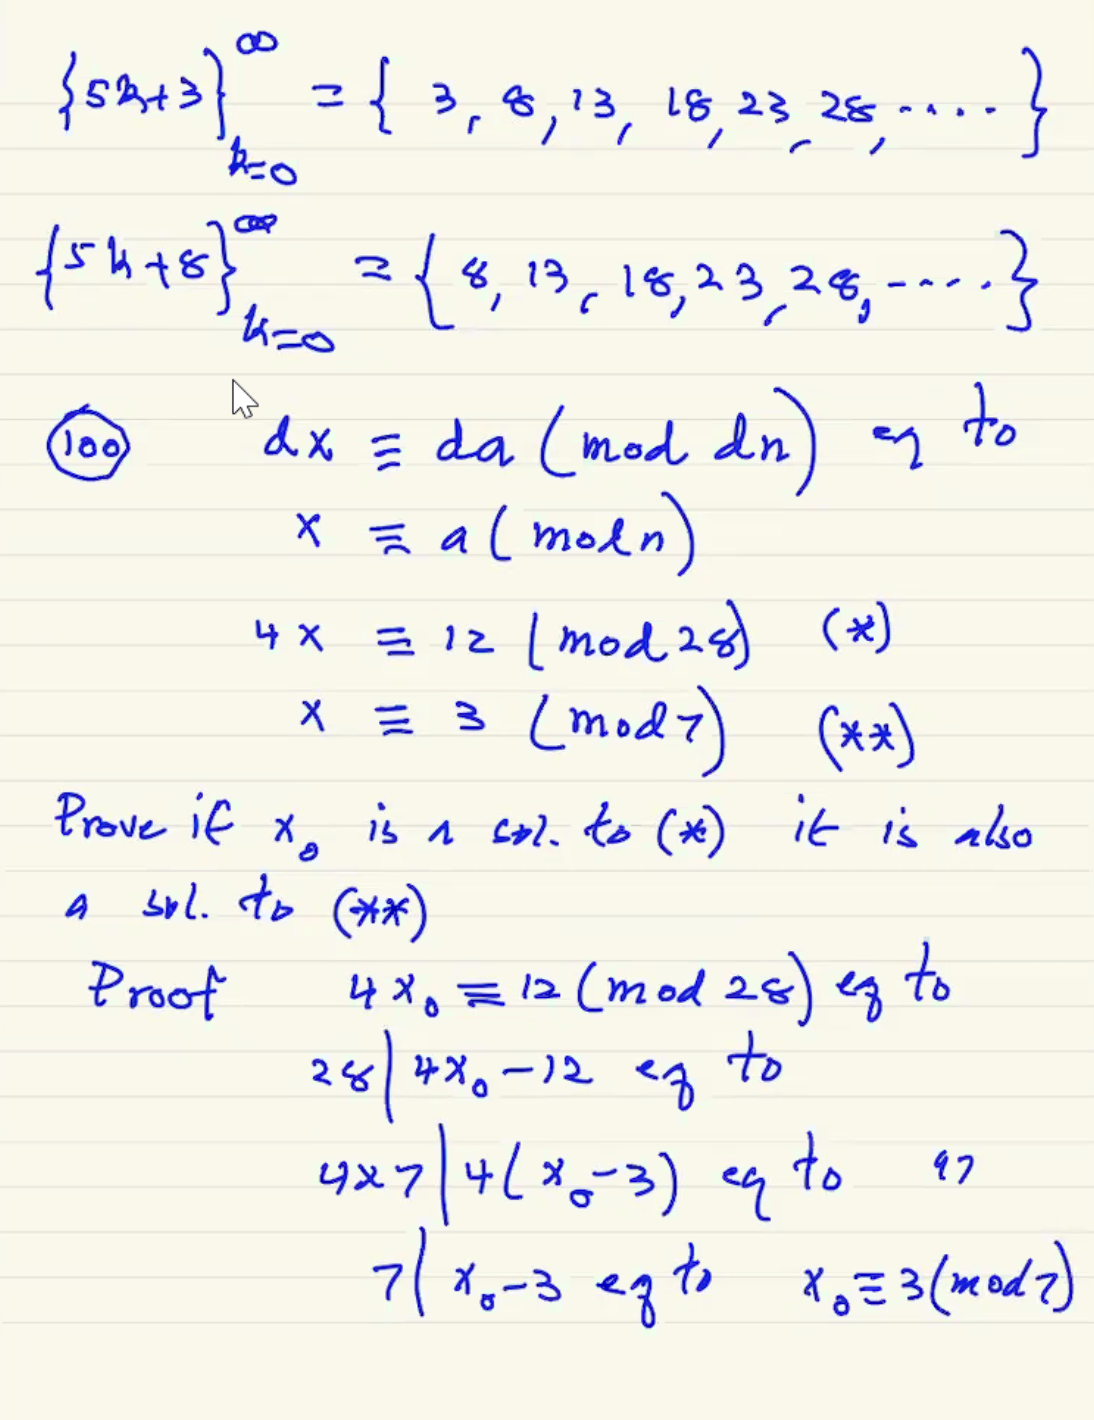 {5k+3}_{k=0}^∞ = { 3, 8, 13, 18, 23, 28, ..... }
{5k+8}_{k=0}^∞ = { 8, 13, 18, 23, 28, ..... }
(100) dx ≡ da (mod dn) eq to
x ≡ a (mod n)
4x ≡ 12 (mod 28) (*)
x ≡ 3 (mod 7) (**)
Prove if x₀ is a sol. to (*) it is also
a sol. to (**)
Proof 4x₀ ≡ 12 (mod 28) eq to
28 | 4x₀ - 12 eq to
4x7 | 4(x₀ - 3) eq to 97
7 | x₀ - 3 eq to x₀ ≡ 3 (mod 7)